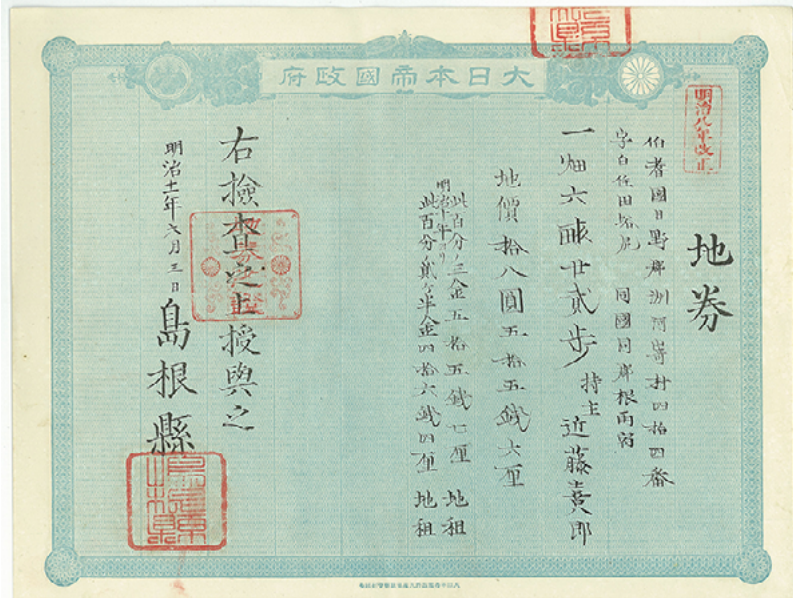 大日本帝國政府
明治八年改正
地券
伯耆國日野郡洲河崎村四拾四番
字白住田 尻 同國同郡根雨宿
一畑六畝廿貳歩 持主 近藤喜八郎
地價拾八圓五拾五錢六厘
此百分ノ三金五拾五錢七厘 地租
明治十年ヨリ
此百分ノ貳ヶ半金四拾六錢四厘 地租
右檢査之上授與之
明治十一年六月三日 島根縣